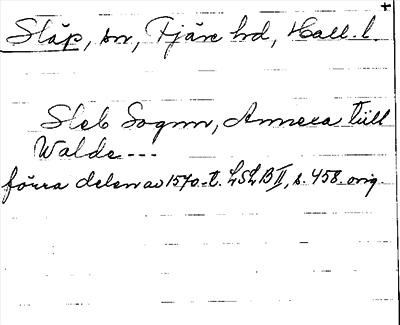 +
Släp, sn, Fjäre hd, Hall. l.
Sleb Sognn, Annexa till
Walde---
förra delen av 1570-t. LSLB II, s. 458. orig.